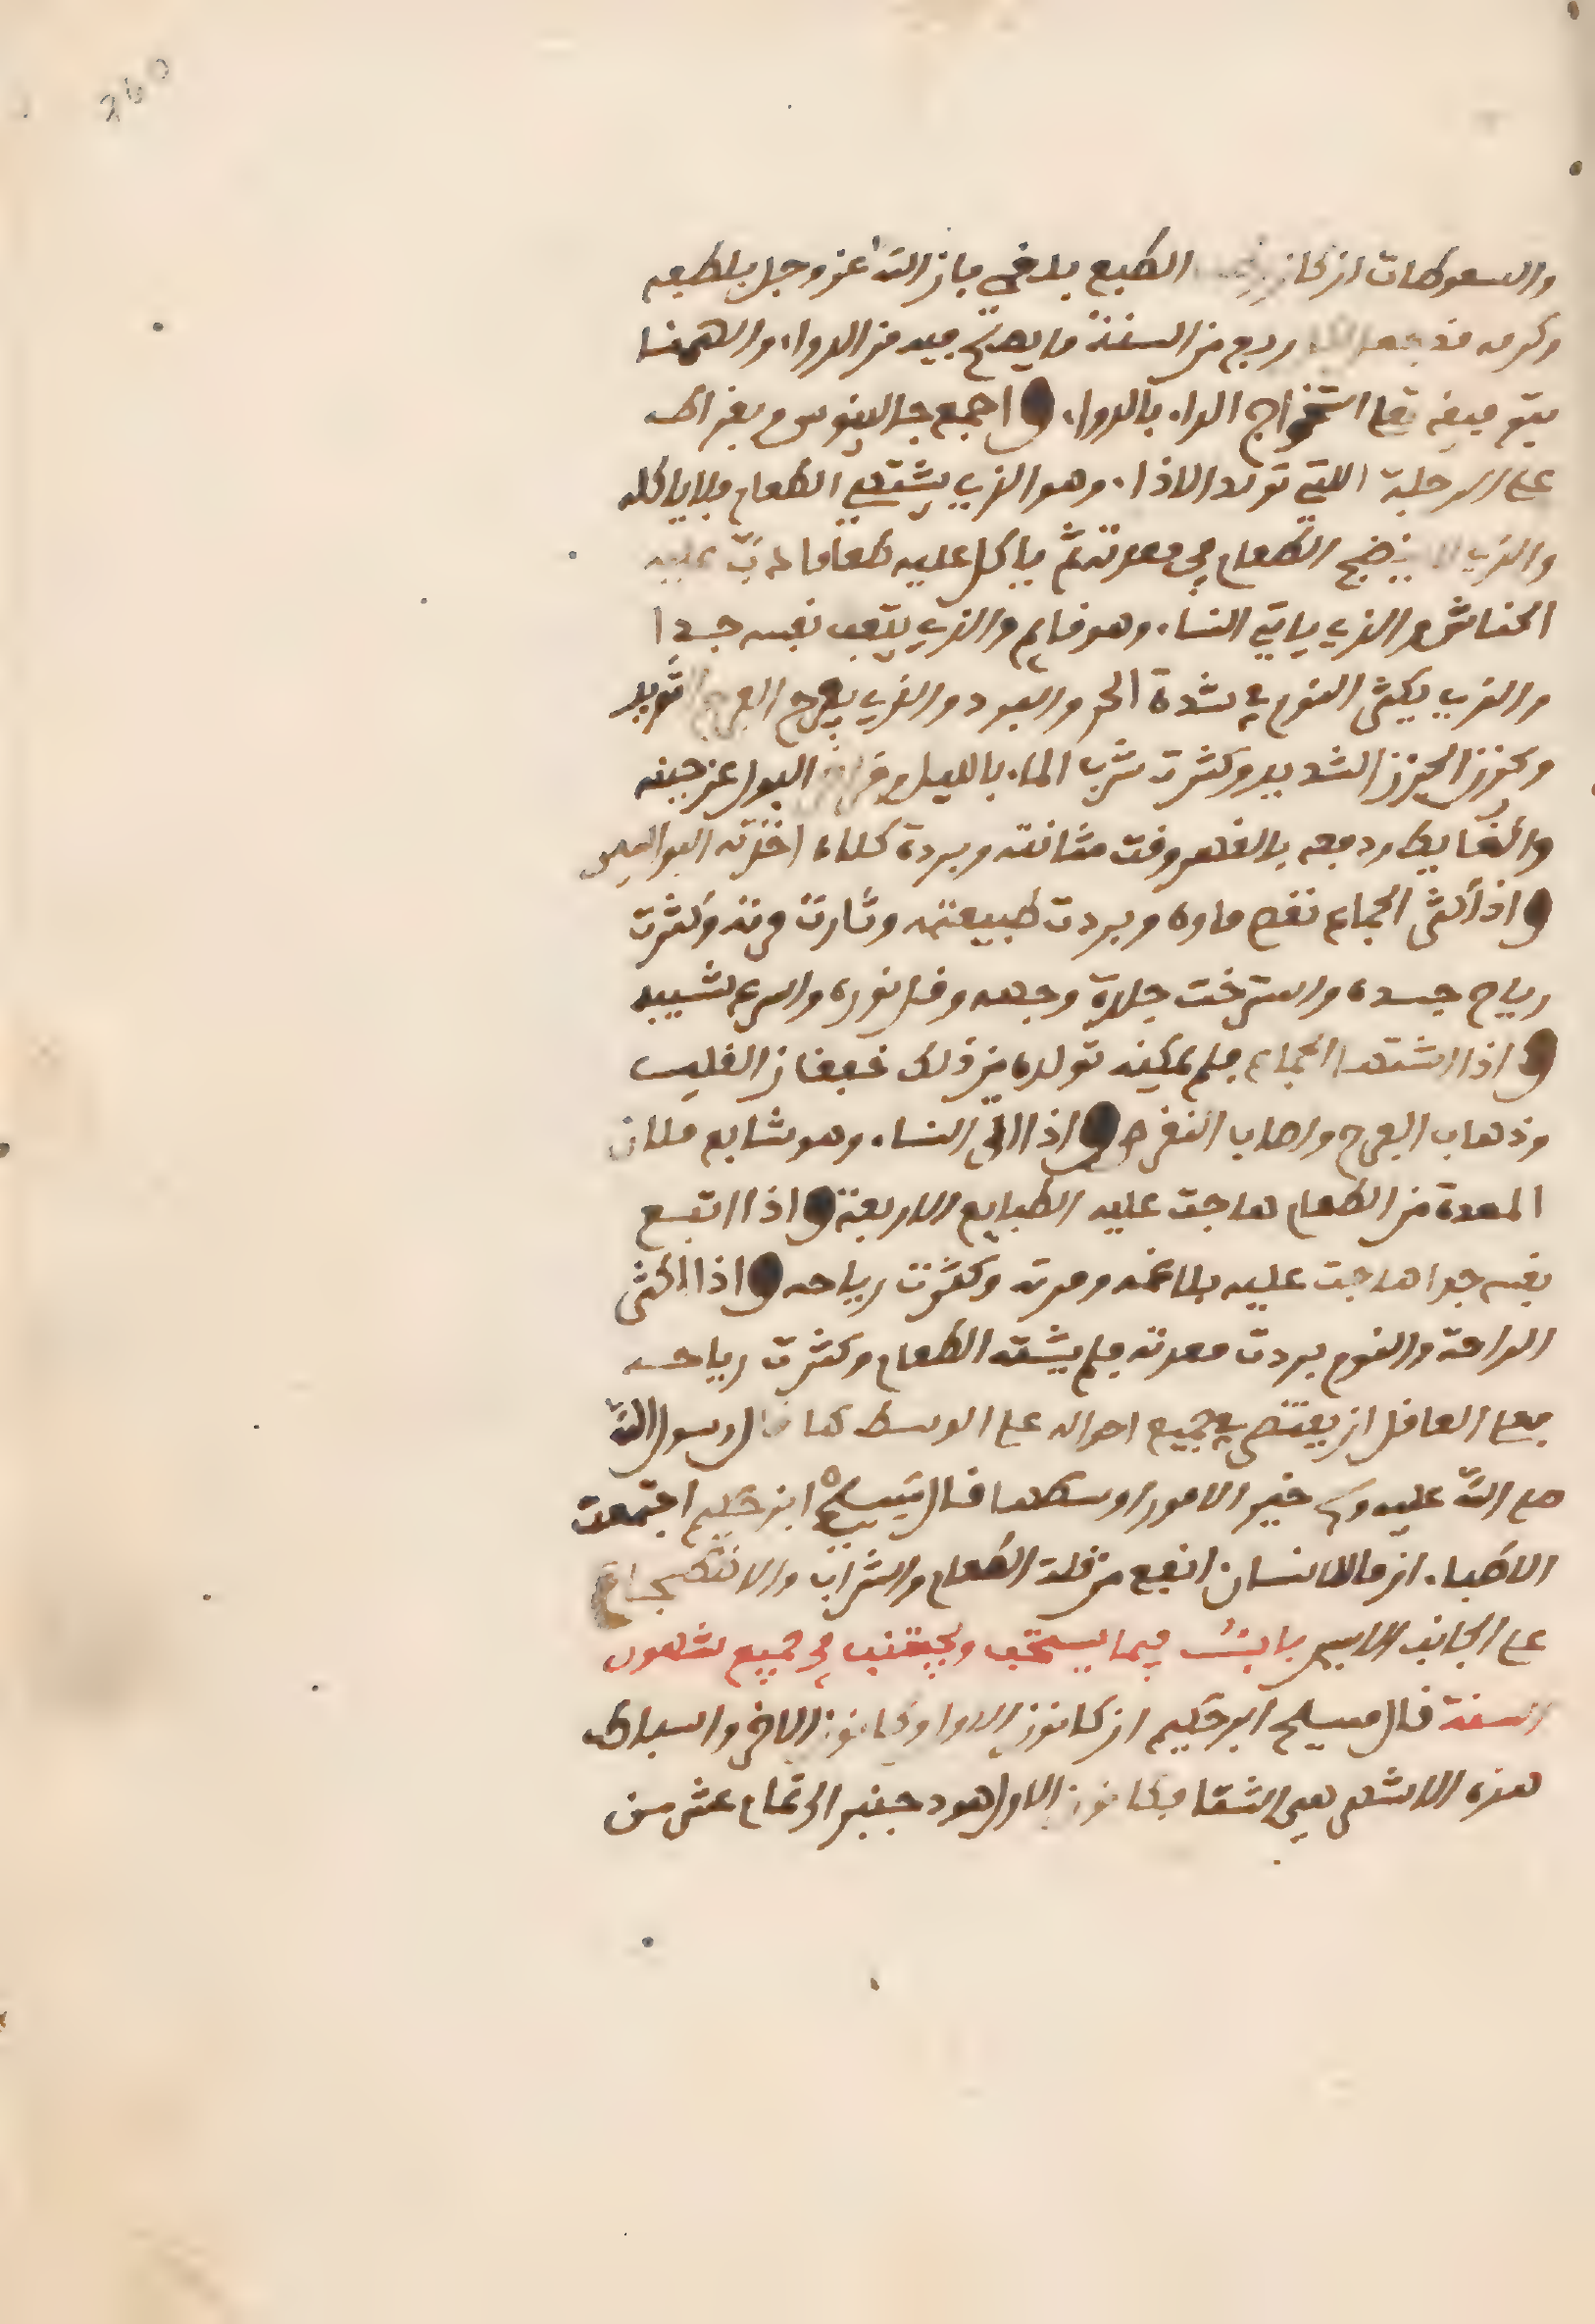 260
والسعوطات ان كان الطبع بلغمي بان الله عز وجل بلطبعه
وكرمه قد جعل لكل ربع من السنة ما يصلح فيه من الدواء والهمنا
بتوفيقه على استخراج الداء بالدواء واجمع جالينوس وبقراط
على الرحلة اللتي تولد الاذاء وهو الذي يشتهي الطعام فلا ياكله
والذي لا ينضج الطعام في معدته ثم ياكل عليه طعاما عليه
الخناش والذي ياتي النساء وهو قايم والذي يتعب نفسه جدا
والذي يكثر النوم في شدة الحر والبرد والذي يفرح الفرح
ويحزن الحزن الشديد وكثرت شرب الماء بالليل البول عن حينه
والغايط ودمعه بالقهر وقت مثانته وبردة كلاه اخذته البواسر
واذا اكثر الجماع نقص ماوه وبردت طبيعته وثارت مرته وكثرت
رياح جسده واسترخت جلدة وجهه وقل نوره واسرع شيبه
واذا اشتها الجماع فلم يمكنه تولده من ذلك خفقان القلب
وذهاب الفرح واصاب النقرص واذا اتى النساء وهو شابع ملان
المعدة من الطعام هاجت عليه الطبايع الاربعة واذا اتبع
نفسه جدا هاجت عليه بلاغمه ومرته وكثرت رياحه واذا اكثر
الراحة والنوم بردت معدته فلم يشته الطعام وكثرت رياحه
فعلى العاقل ان يقتص في جميع احواله على الوسط كما قال رسول الله
صلى الله عليه وسلم خير الامور اوسطها قال مسيح ابن حكيم اجتمعت
الاطباء ان ما للانسان انفع من قلة الطعام والشراب والاضطجاع
على الجانب الايسر باب فيما يستحب ويجتنب في جميع شهور
السنة قال مسيح ابن حكيم ان كانون الاول وكانون الاخر واسباط
هذه الاشهر هي الشتا فكانون الاول هو دجنبر الى تمام عشر من